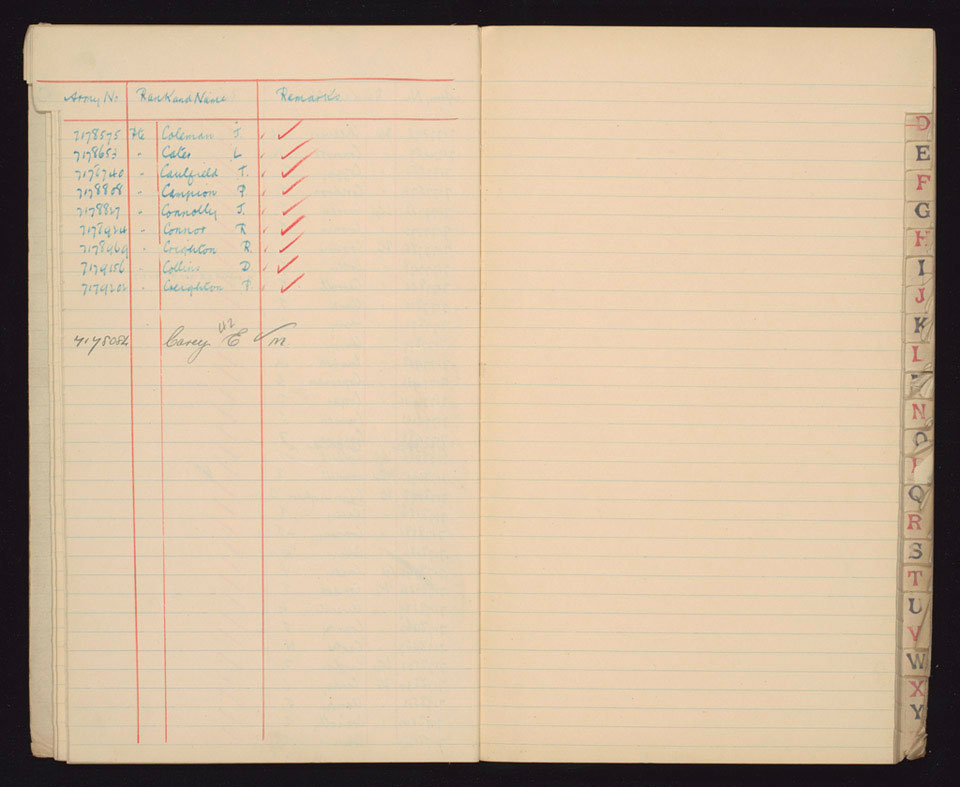 Army No Rank and Name Remarks
7178575 Pte Coleman J. ✓
7178653 " Cates L ✓
7178740 " Caulfield T. ✓
7178808 " Campion P. ✓
7178827 " Connolly J. ✓
7178924 " Connor R ✓
7178969 " Creighton R. ✓
7179156 " Collins D ✓
7179202 " Creighton F. ✓
7175084 Casey E ✓ m
D
E
F
G
H
I
J
K
L
N
O
Q
R
S
T
U
V
W
X
Y